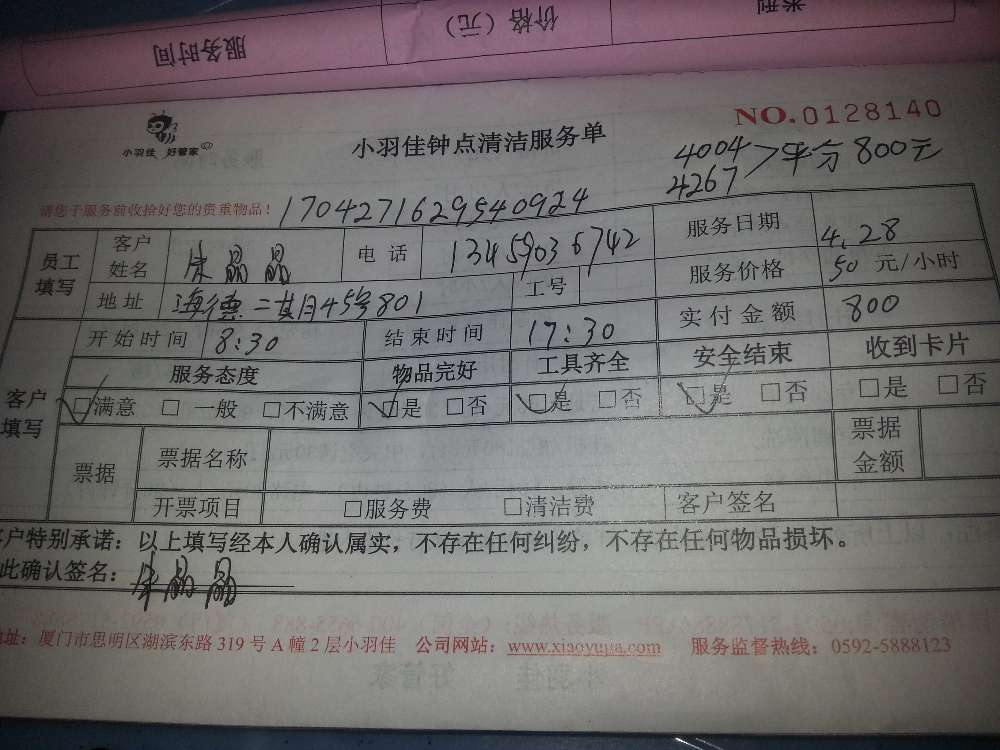 服务时间 价格（元） 类型
小羽佳 好管家
小羽佳钟点清洁服务单
NO.0128140
4004
4267 > 平分 800元
请您于服务前收拾好您的贵重物品！ 1704271629540924
员工填写 客户姓名 晶晶 电话 13459036742 服务日期 4.28
地址 海德二期45号801 工号 服务价格 50 元/小时
开始时间 8:30 结束时间 17:30 实付金额 800
客户填写 服务态度 物品完好 工具齐全 安全结束 收到卡片
☑满意 □一般 □不满意 ☑是 □否 ☑是 □否 ☑是 □否 □是 □否
票据 票据名称 票据金额
开票项目 □服务费 □清洁费 客户签名
客户特别承诺：以上填写经本人确认属实，不存在任何纠纷，不存在任何物品损坏。
此确认签名： 晶晶
地址：厦门市思明区湖滨东路 319 号 A 幢 2 层小羽佳 公司网站：www.xiaoyujia.com 服务监督热线：0592-5888123